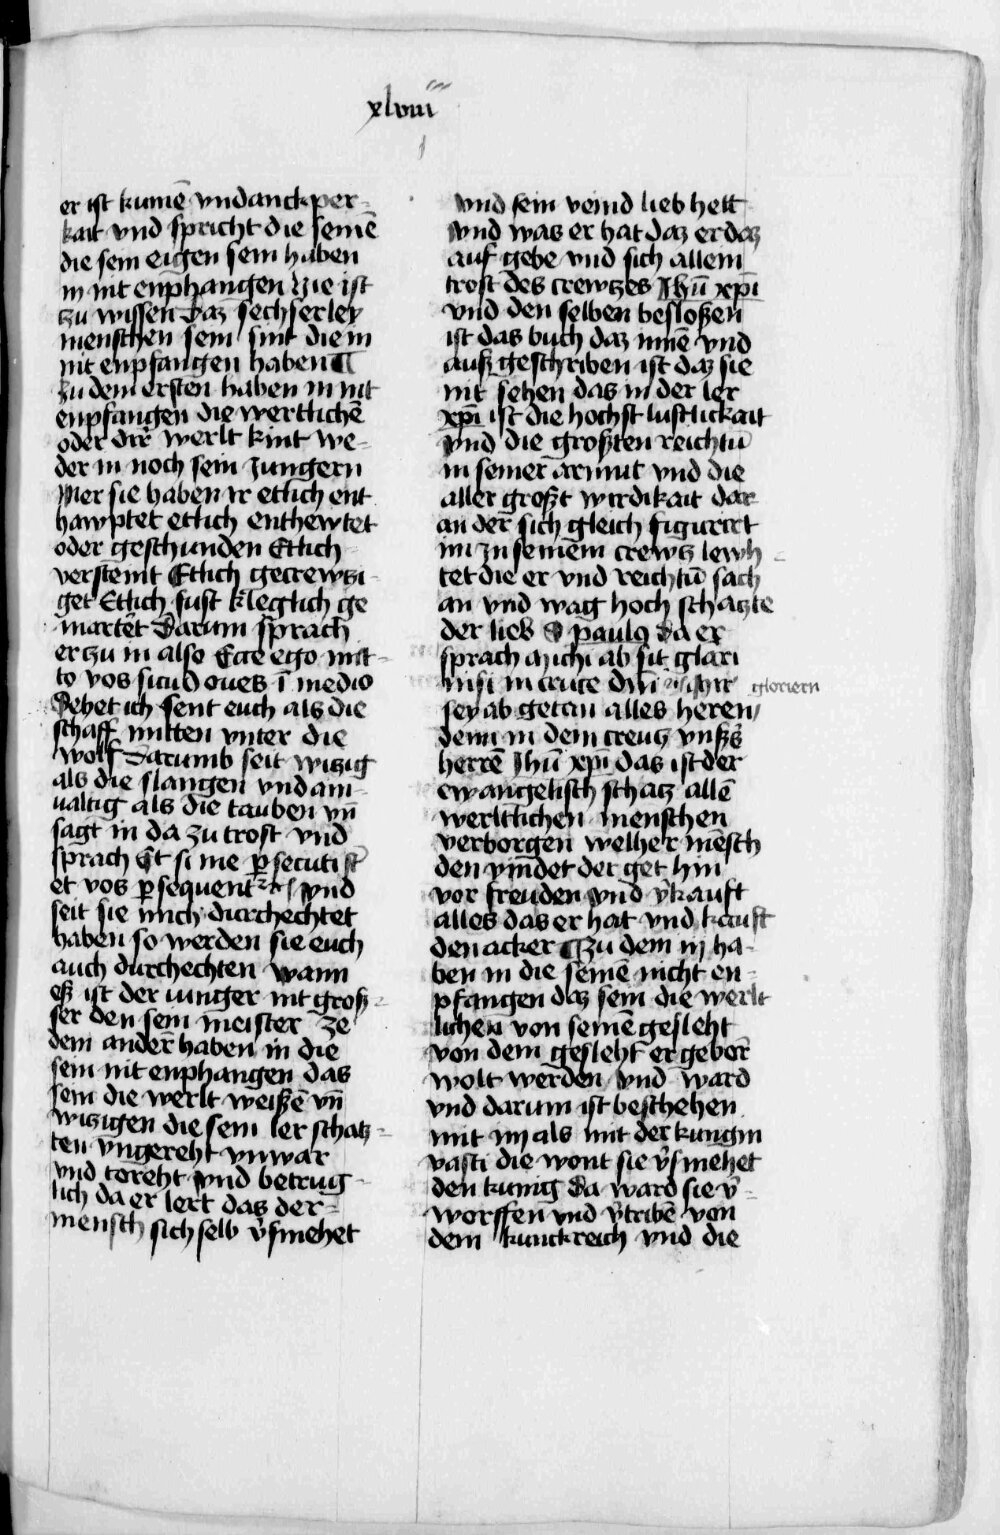 xlviii
er ist kumē vndanckper-
kait vnd spricht die seinē
die sein eigen sein haben
in nit enphangen Hie ist
tzu wissen daz sechserley
menschen sein sint die in
nit enpfangen haben ¶
Zu dem ersten haben in nit
enpfangen die werltlichē
oder der werlt kint we-
der in noch sein Jungern
Wer sie haben ir etlich ent
hawptet etlich enthewtet
oder geschunden Etlich
versteint Etlich gecrewtzi-
get Etlich sust kleglich ge
martet Darum sprach
er zu in also Ecce ego mit-
to vos sicud oues ī medio
Sehet ich sent euch als die
schaff mitten vnter die
wolf Darumb seit witzig
als die slangen vnd ain-
ualtig als die tauben vn̄
sagt in da zu trost vnd
sprach Et si me ꝑsecuti st̄
et vos ꝑsequent᷑ vnd
seit sie mich durchechtet
haben so werden sie euch
auch durchechten wann
eß ist der iunger nit groß-
ser den sein meister Ze
dem ander haben in die
sein nit enphangen das
sein die werlt weißē vn̄
witzigen die sein ler schatz-
ten vngereht vnwar
vnd toreht vnd betrug-
lich da er lert das der-
mensch sich selb v̉smehet
vnd sein veind lieb hett
vnd was er hat daz er daz
auf gebe vnd sich allein
trost des crewtzes Jhū xpī
vnd den selben besloßen
ist das buch daz innē vnd
auß geschriben ist daz sie
nit sehen das in der ler
xpī ist die hochst lustlickait
vnd die großten reichtū
in seiner armut vnd die
aller großt wirdikait dar
an der sich gleich figurirt
im zu seinem crewtz lewh-
tet die er vnd reichtū sach
an vnd wag hoch schatzte
der lieb S paulꝯ da er
sprach Michi ab sit glari
nisi in cruce dn̄i Mir gloriern
sey ab getan alles heren
denn in dem creutz vnßs̉
herrē Jhū xpī das ist der
ewangelisch schatz allē
werltlichen menschen
verborgen welher mēsch
den vindet der get hin
vor freuden vnd v̉kauft
alles das er hat vnd kauft
den acker ¶ Zu dem iij ha-
ben in die seinē nicht en-
pfangen daz sein die werlt
lichen von seinē gesleht
von dem gesleht er geborn̄
wolt werden vnd ward
vnd darum ist beschehen
mit in als mit der kungin
vasti die wont sie v̉smehet
den kunig da ward sie v̉-
worffen vnd v̉tribē von
dem kunckreich vnd die